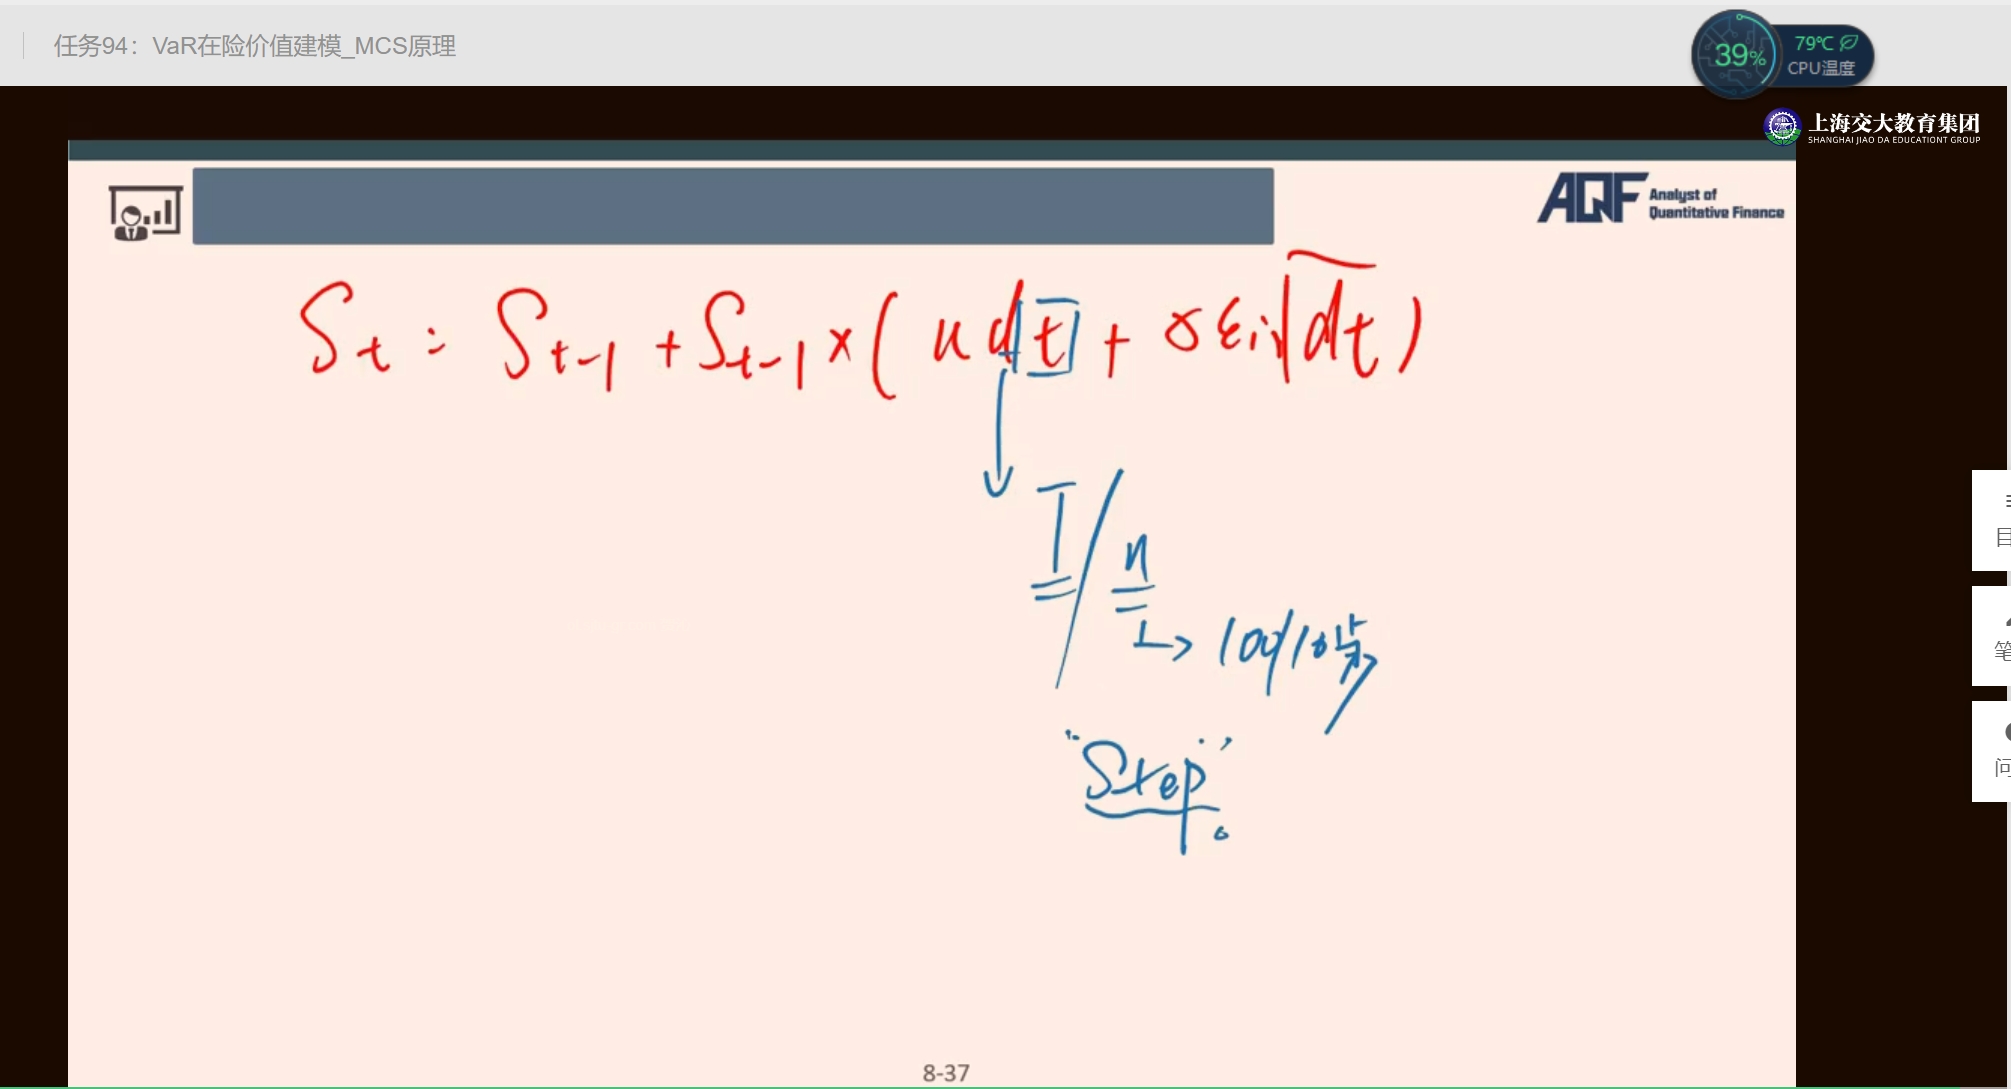 任务94：VaR在险价值建模_MCS原理
39%
79℃
CPU温度
上海交大教育集团
SHANGHAI JIAO DA EDUCATIONT GROUP
AQF Analyst of
Quantitative Finance
St = St-1 + St-1 × ( u dt + σ εi √dt )
T / n
目
笔
问
"Step"
8-37